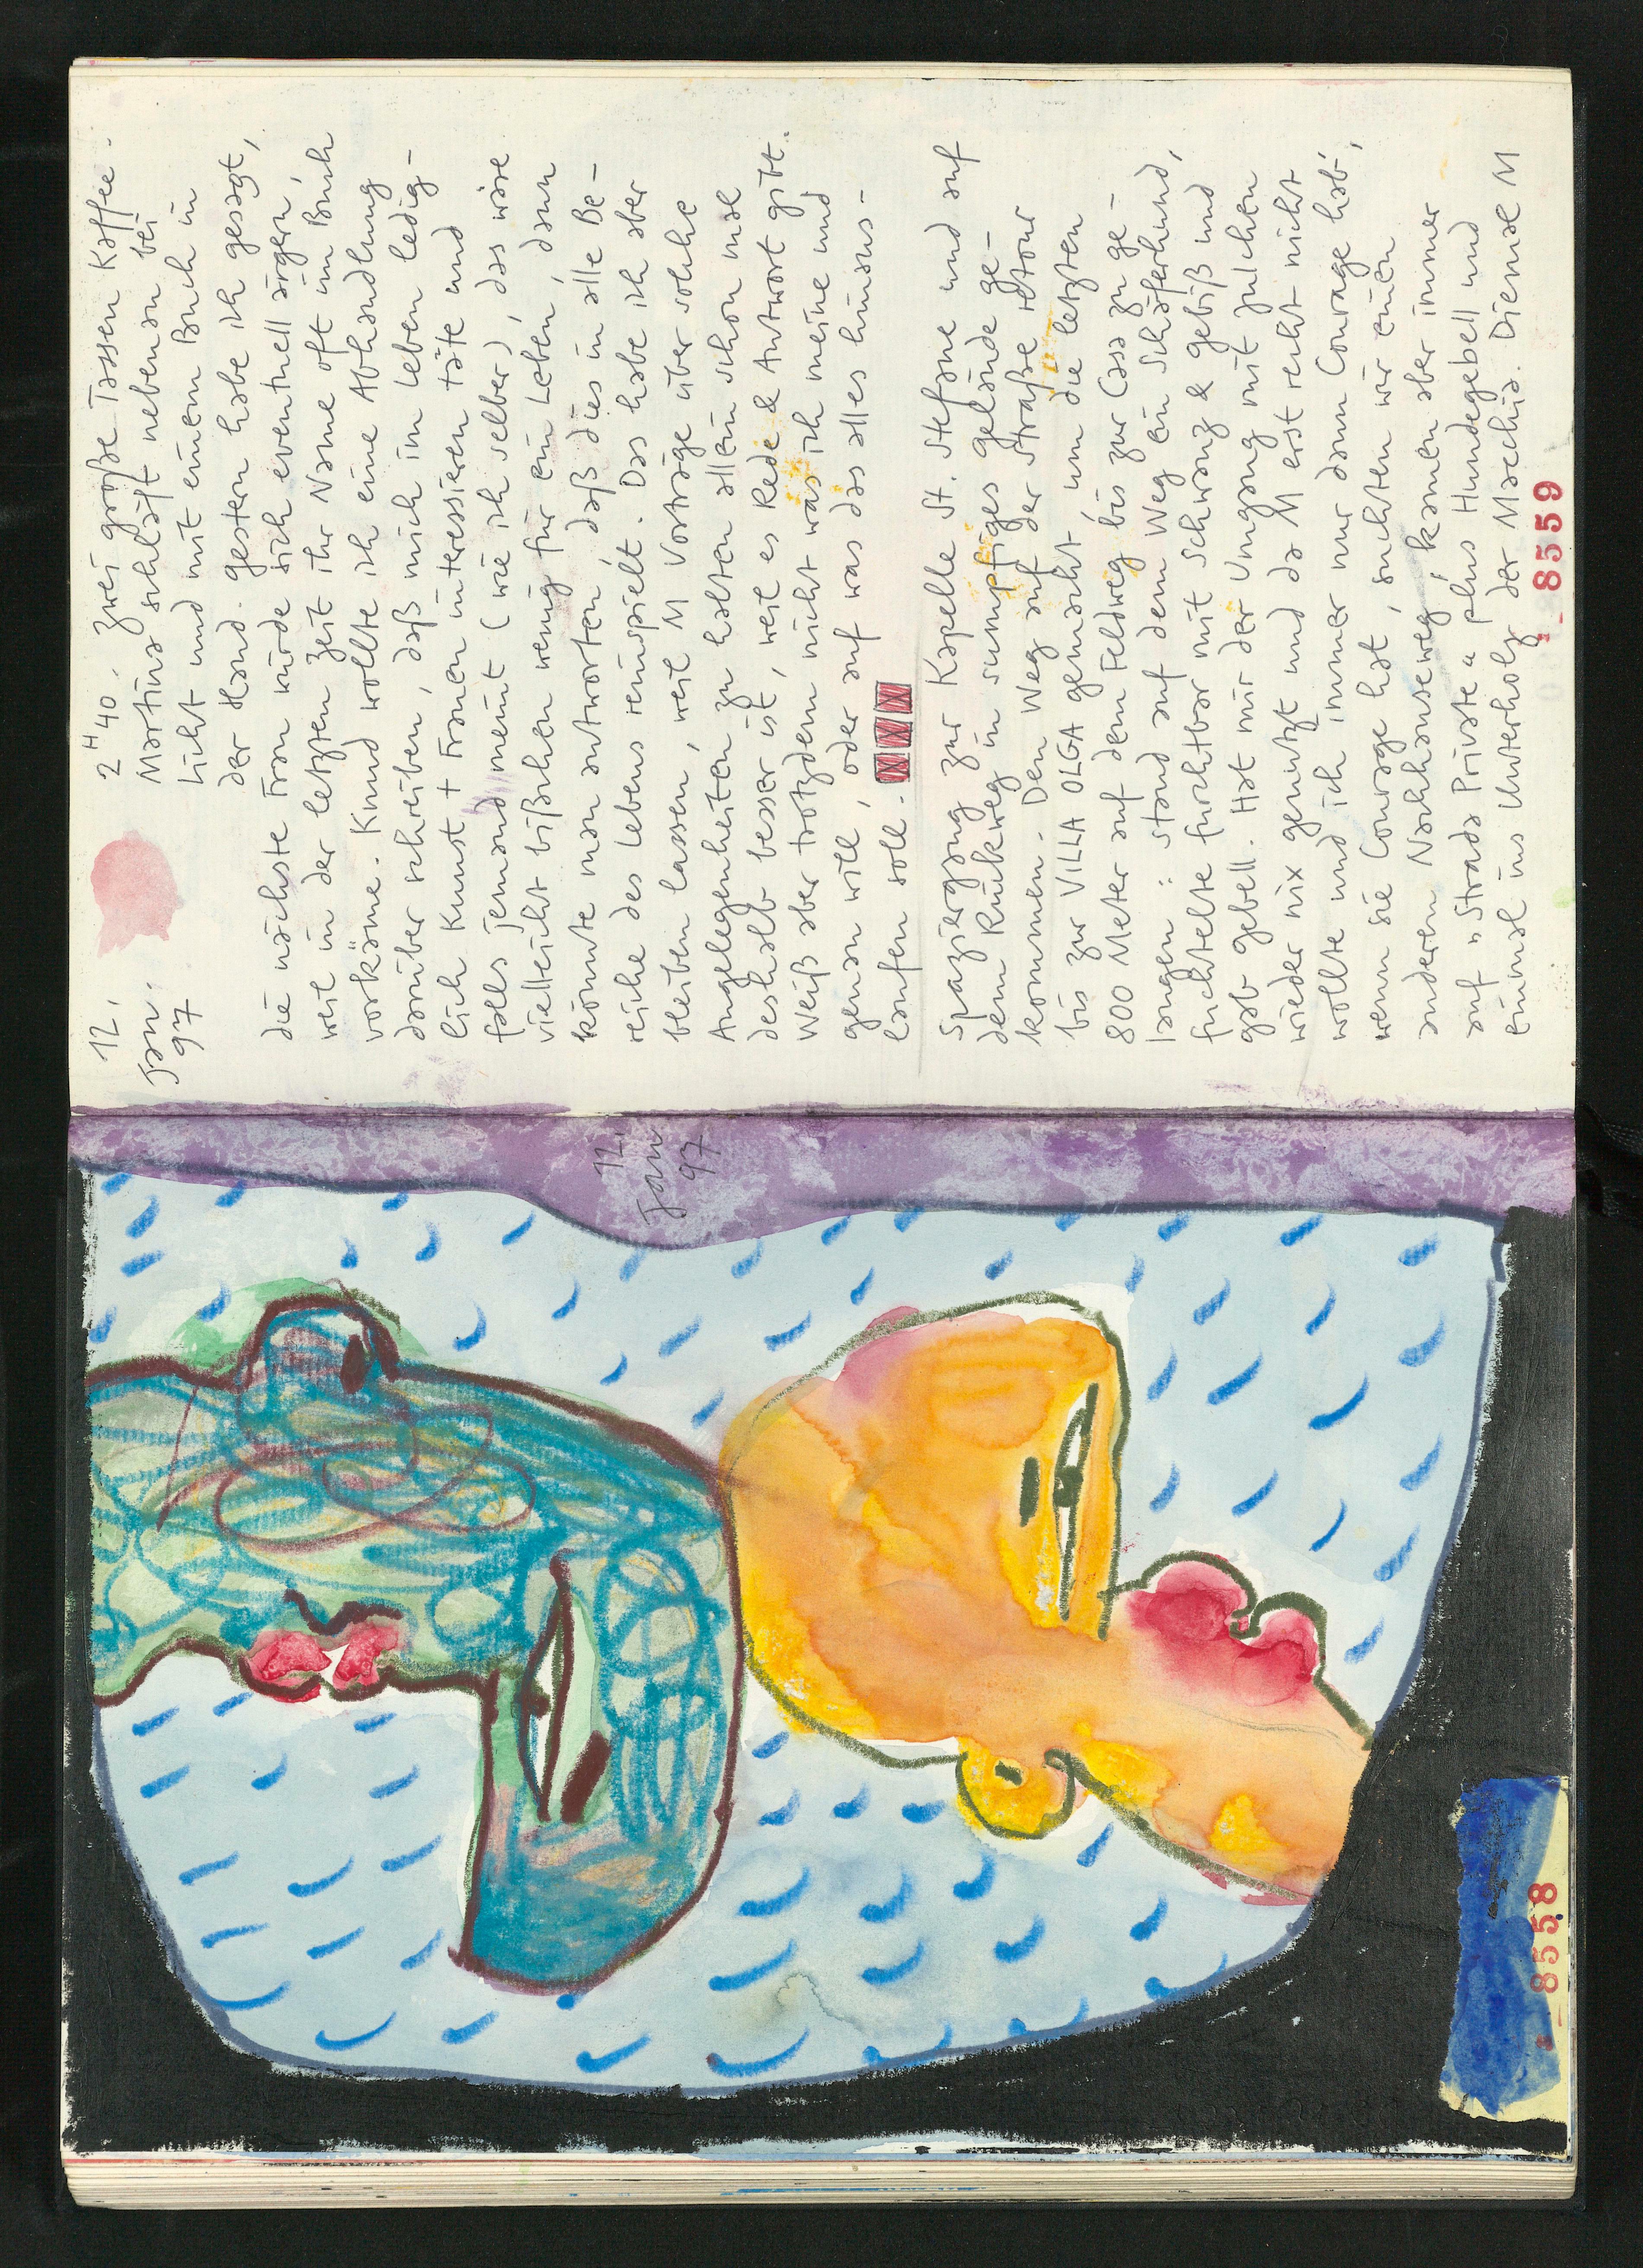 12.
Jan.
97
2H40. Zwei große Tassen Kaffee.
Martina schläft nebenan bei
Licht und mit einem Buch in
der Hand. Gestern habe ich gesagt,
die nächste Frau würde sich eventuell ärgern,
weil in der letzten Zeit ihr Name oft im Buch
vorkäme. Knud wollte ich eine Abhandlung
darüber schreiben, daß mich im Leben ledig-
lich Kunst + Frauen interessieren täte und
falls jemand meint (wie ich selber), das wäre
vielleicht bißchen wenig für ein Leben, dann
könnte man antworten, daß dies in alle Be-
reiche des Lebens reinspielt. Das habe ich aber
bleiben lassen, weil M Vorträge über solche
Angelegenheiten zu halten allein schon mal
deshalb besser ist, weil es Rede & Antwort gibt.
Weiß aber trotzdem nicht was ich meine und
genau will, oder auf was das alles hinaus-
laufen soll.
Spaziergang zur Kapelle St. Stefano und auf
dem Rückweg in sumpfiges Gelände ge-
kommen. Den Weg auf der Straße retour
bis zur VILLA OLGA gemacht, um die letzten
800 Meter auf dem Feldweg bis zur Casa zu ge-
langen: stand auf dem Weg ein Schäferhund,
fuchtelte furchtbar mit Schwanz & Gebiß und
gab Gebell. Hat mir der Umgang mit Julchen
wieder nix genützt und da M erst recht nicht
wollte und ich immer nur dann Courage hab',
wenn sie Courage hat, suchten wir einen
anderen Nachhauseweg, kamen aber immer
auf „Strada Privata" plus Hundegebell und
einmal ins Unterholz der Macchia. Diemal M
8559
12.
Jan
97
8558